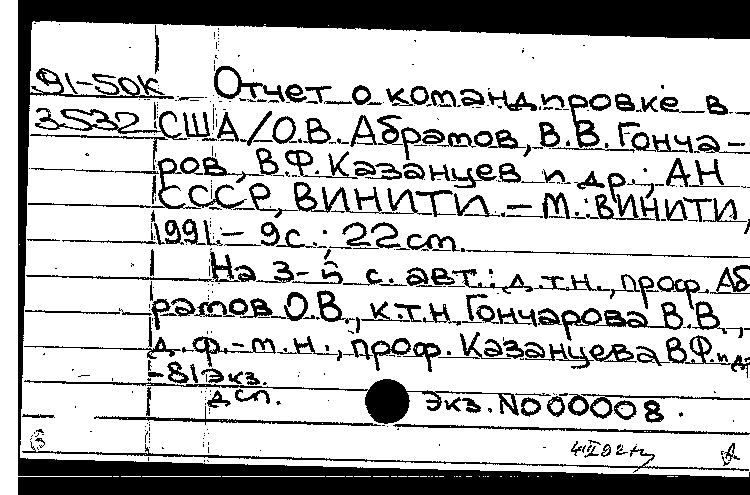 91-50К Отчет о командировке в
3532 США/О.В. Абрамов, В.В. Гонча-
ров, В.Ф. Казанцев и др.; АН
СССР, ВИНИТИ. – М.: ВИНИТИ,
1991. – 9с.; 22 см.
На 3-5 с. авт.: д.т.н., проф. Аб
рамов О.В., к.т.н. Гончарова В.В.,
д.ф.-м.н., проф. Казанцева В.Ф. и др
-81 экз.
дсп. Экз. N000008.